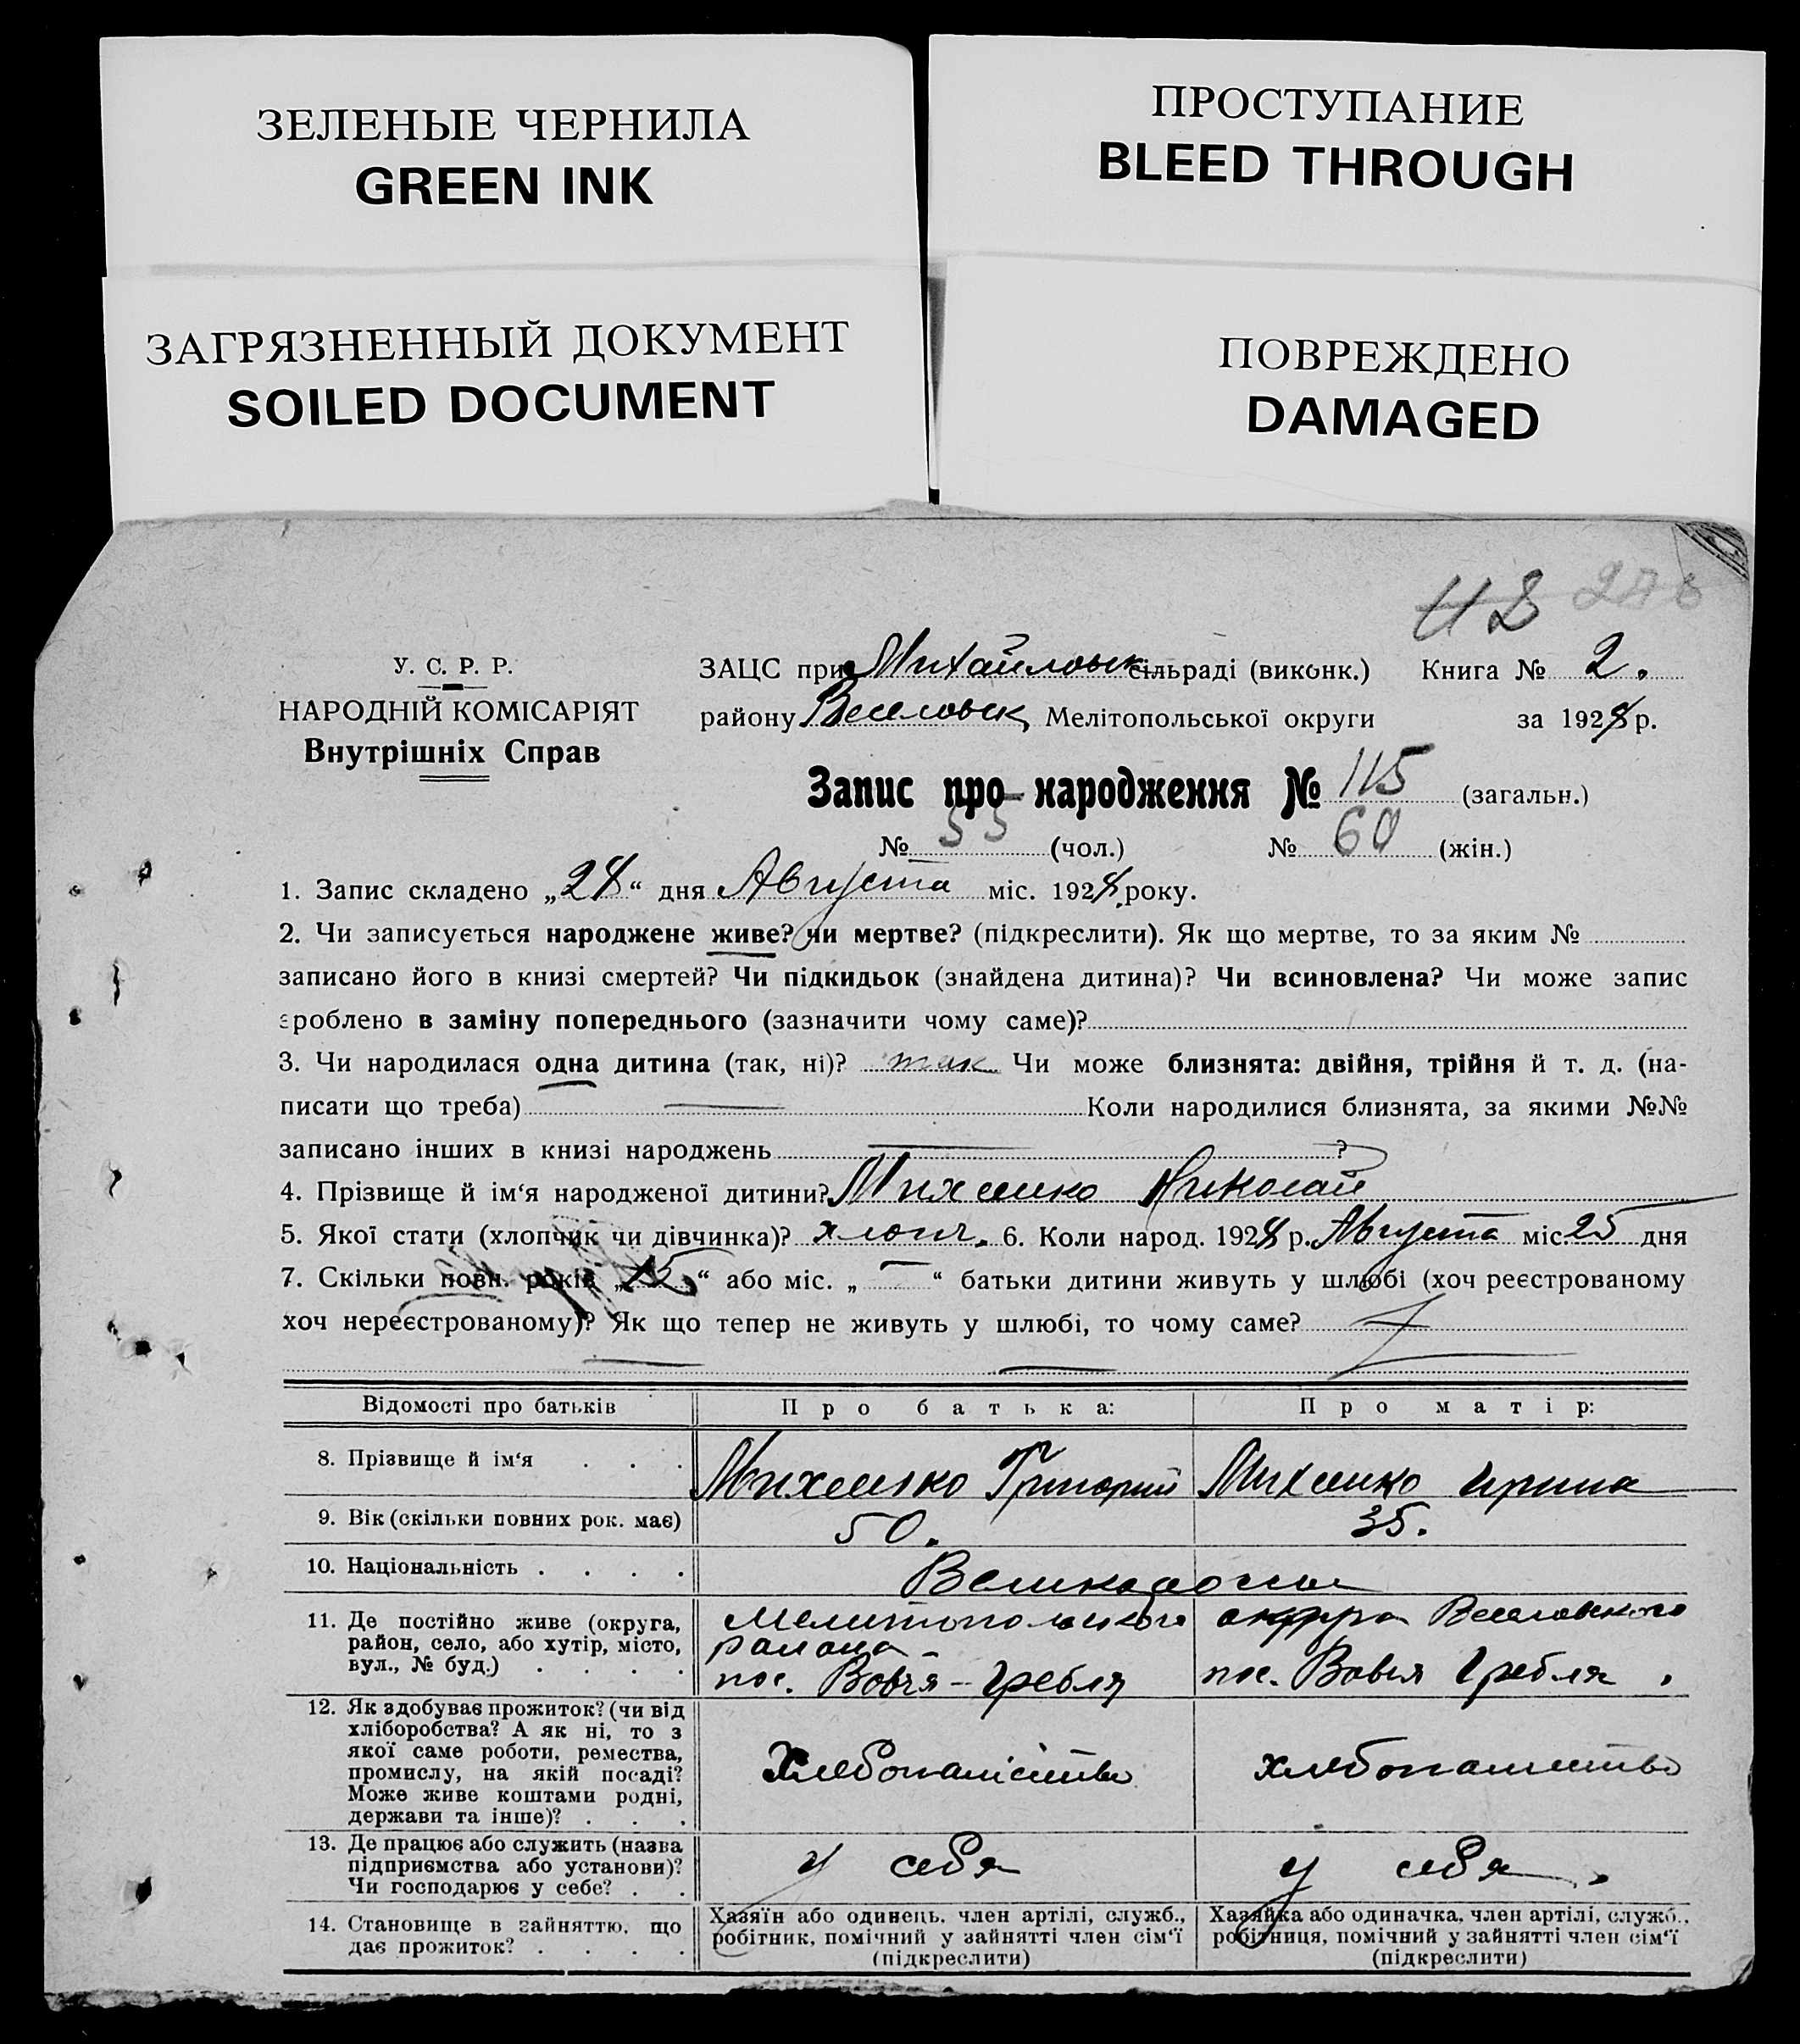 ЗЕЛЕНЫЕ ЧЕРНИЛА
GREEN INK
ПРОСТУПАНИЕ
BLEED THROUGH
ЗАГРЯЗНЕННЫЙ ДОКУМЕНТ
SOILED DOCUMENT
ПОВРЕЖДЕНО
DAMAGED
У. С. Р. Р.
НАРОДНІЙ КОМІСАРІЯТ
Внутрішніх Справ
ЗАЦС при Михайловск сільраді (виконк.) Книга № 2.
району Веселовск, Мелітопольської округи за 1928 р.
Запис про народження № 115 (загальн.)
№ 55 (чол.) № 60 (жін.)
1. Запис складено „28“ дня Августа міс. 1928 року.
2. Чи записується народжене живе? чи мертве? (підкреслити). Як що мертве, то за яким №
записано його в книзі смертей? Чи підкидьок (знайдена дитина)? Чи всиновлена? Чи може запис
зроблено в заміну попереднього (зазначити чому саме)?
3. Чи народилася одна дитина (так, ні)? так Чи може близнята: двійня, трійня й т. д. (на-
писати що треба) — Коли народилися близнята, за якими №№
записано інших в книзі народжень — ?
4. Прізвище й ім‘я народженої дитини? Михенко Николай
5. Якої стати (хлопчик чи дівчинка)? хлопч. 6. Коли народ. 1928 р. Августа міс 25 дня
7. Скільки повн. років „15“ або міс. „—“ батьки дитини живуть у шлюбі (хоч реєстрованому
хоч нереєстрованому)? Як що тепер не живуть у шлюбі, то чому саме?
Відомості про батьків
Про батька:
Про матір:
8. Прізвище й ім‘я . . .
Михенко Григорий
Михенко Ирина
9. Вік (скільки повних рок. має)
50.
35.
10. Національність . . . .
Великороссы
11. Де постійно живе (округа,
район, село, або хутір, місто,
вул., № буд.) . . . .
Мелитопольского округа Веселовского
района
пос. Вовчя - Гребля
пос. Вовчя Гребля .
12. Як здобуває прожиток? (чи від
хліборобства? А як ні, то з
якої саме роботи, ремества,
промислу, на якій посаді?
Може живе коштами родні,
держави та інше)? . . .
Хлебопашество
хлебопашество
13. Де працює або служить (назва
підприємства або установи)?
Чи господарює у себе? . .
у себя
у себя .
14. Становище в зайняттю, що
дає прожиток? . . . .
Хазяїн або одинець, член артілі, служб.,
робітник, помічний у зайнятті член сім‘ї
(підкреслити)
Хазяйка або одиначка, член артілі, служб.,
робітниця, помічний у зайнятті член сім‘ї
(підкреслити)